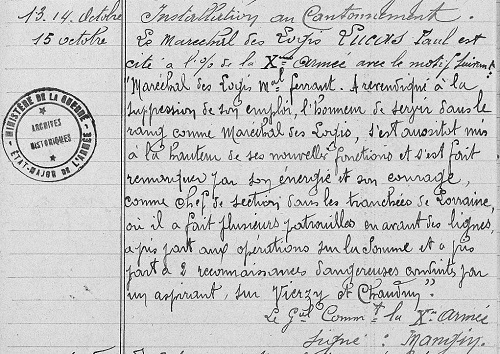 13.14. Octobre
Installation au Cantonnement.
15 octobre
Le Marechal des Logis LUCAS Paul est
cité à l'% de la Xème Armée avec le motif suivant:
"Maréchal des Logis Mal ferrant. A revendiqué à la
suppression de son emploi, l'honneur de servir dans le
rang comme Maréchal des Logis, s'est aussitot mis
à la hauteur de ses nouvelles fonctions et s'est fait
remarquer par son énergie et son courage,
comme chef de section dans les tranchées de Lorraine,
où il a fait plusieurs patrouilles en avant des lignes,
a pris part aux opérations sur la Somme et a pris
part à 2 reconnaissances dangereuses conduites par
un aspirant, sur Vierzy et Chaudun".
Le Gal Commt la Xe Armée
Signé: Mangin.
MINISTÈRE DE LA GUERRE
ARCHIVES
HISTORIQUES
ÉTAT-MAJOR DE L'ARMÉE